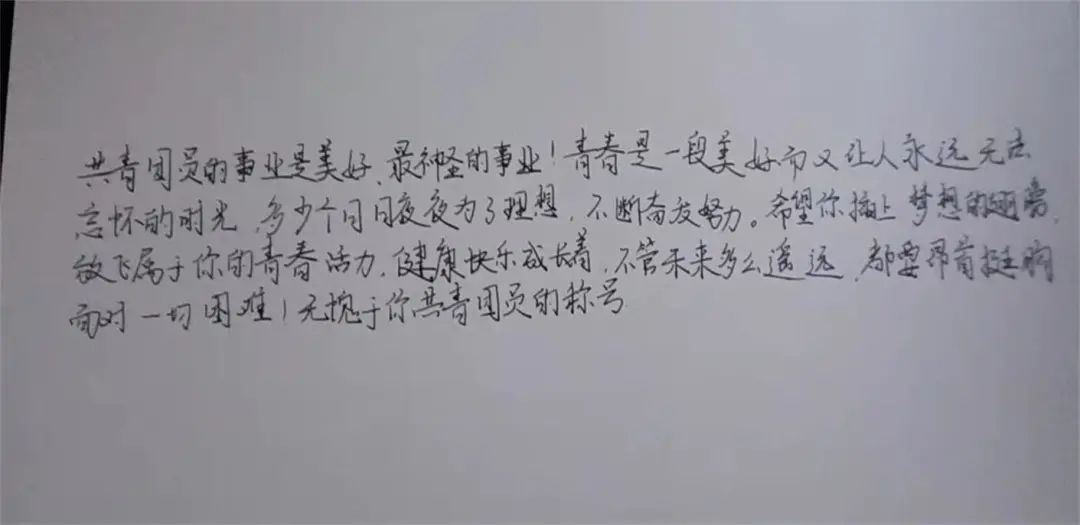 共青团员的事业是美好、最神圣的事业！青春是一段美好而又让人永远无法
忘怀的时光，多少个日日夜夜为了理想，不断奋发努力。希望你插上梦想的翅膀，
放飞属于你的青春活力，健康快乐成长着，不管未来多么遥远，都要昂首挺胸
面对一切困难！无愧于你共青团员的称号